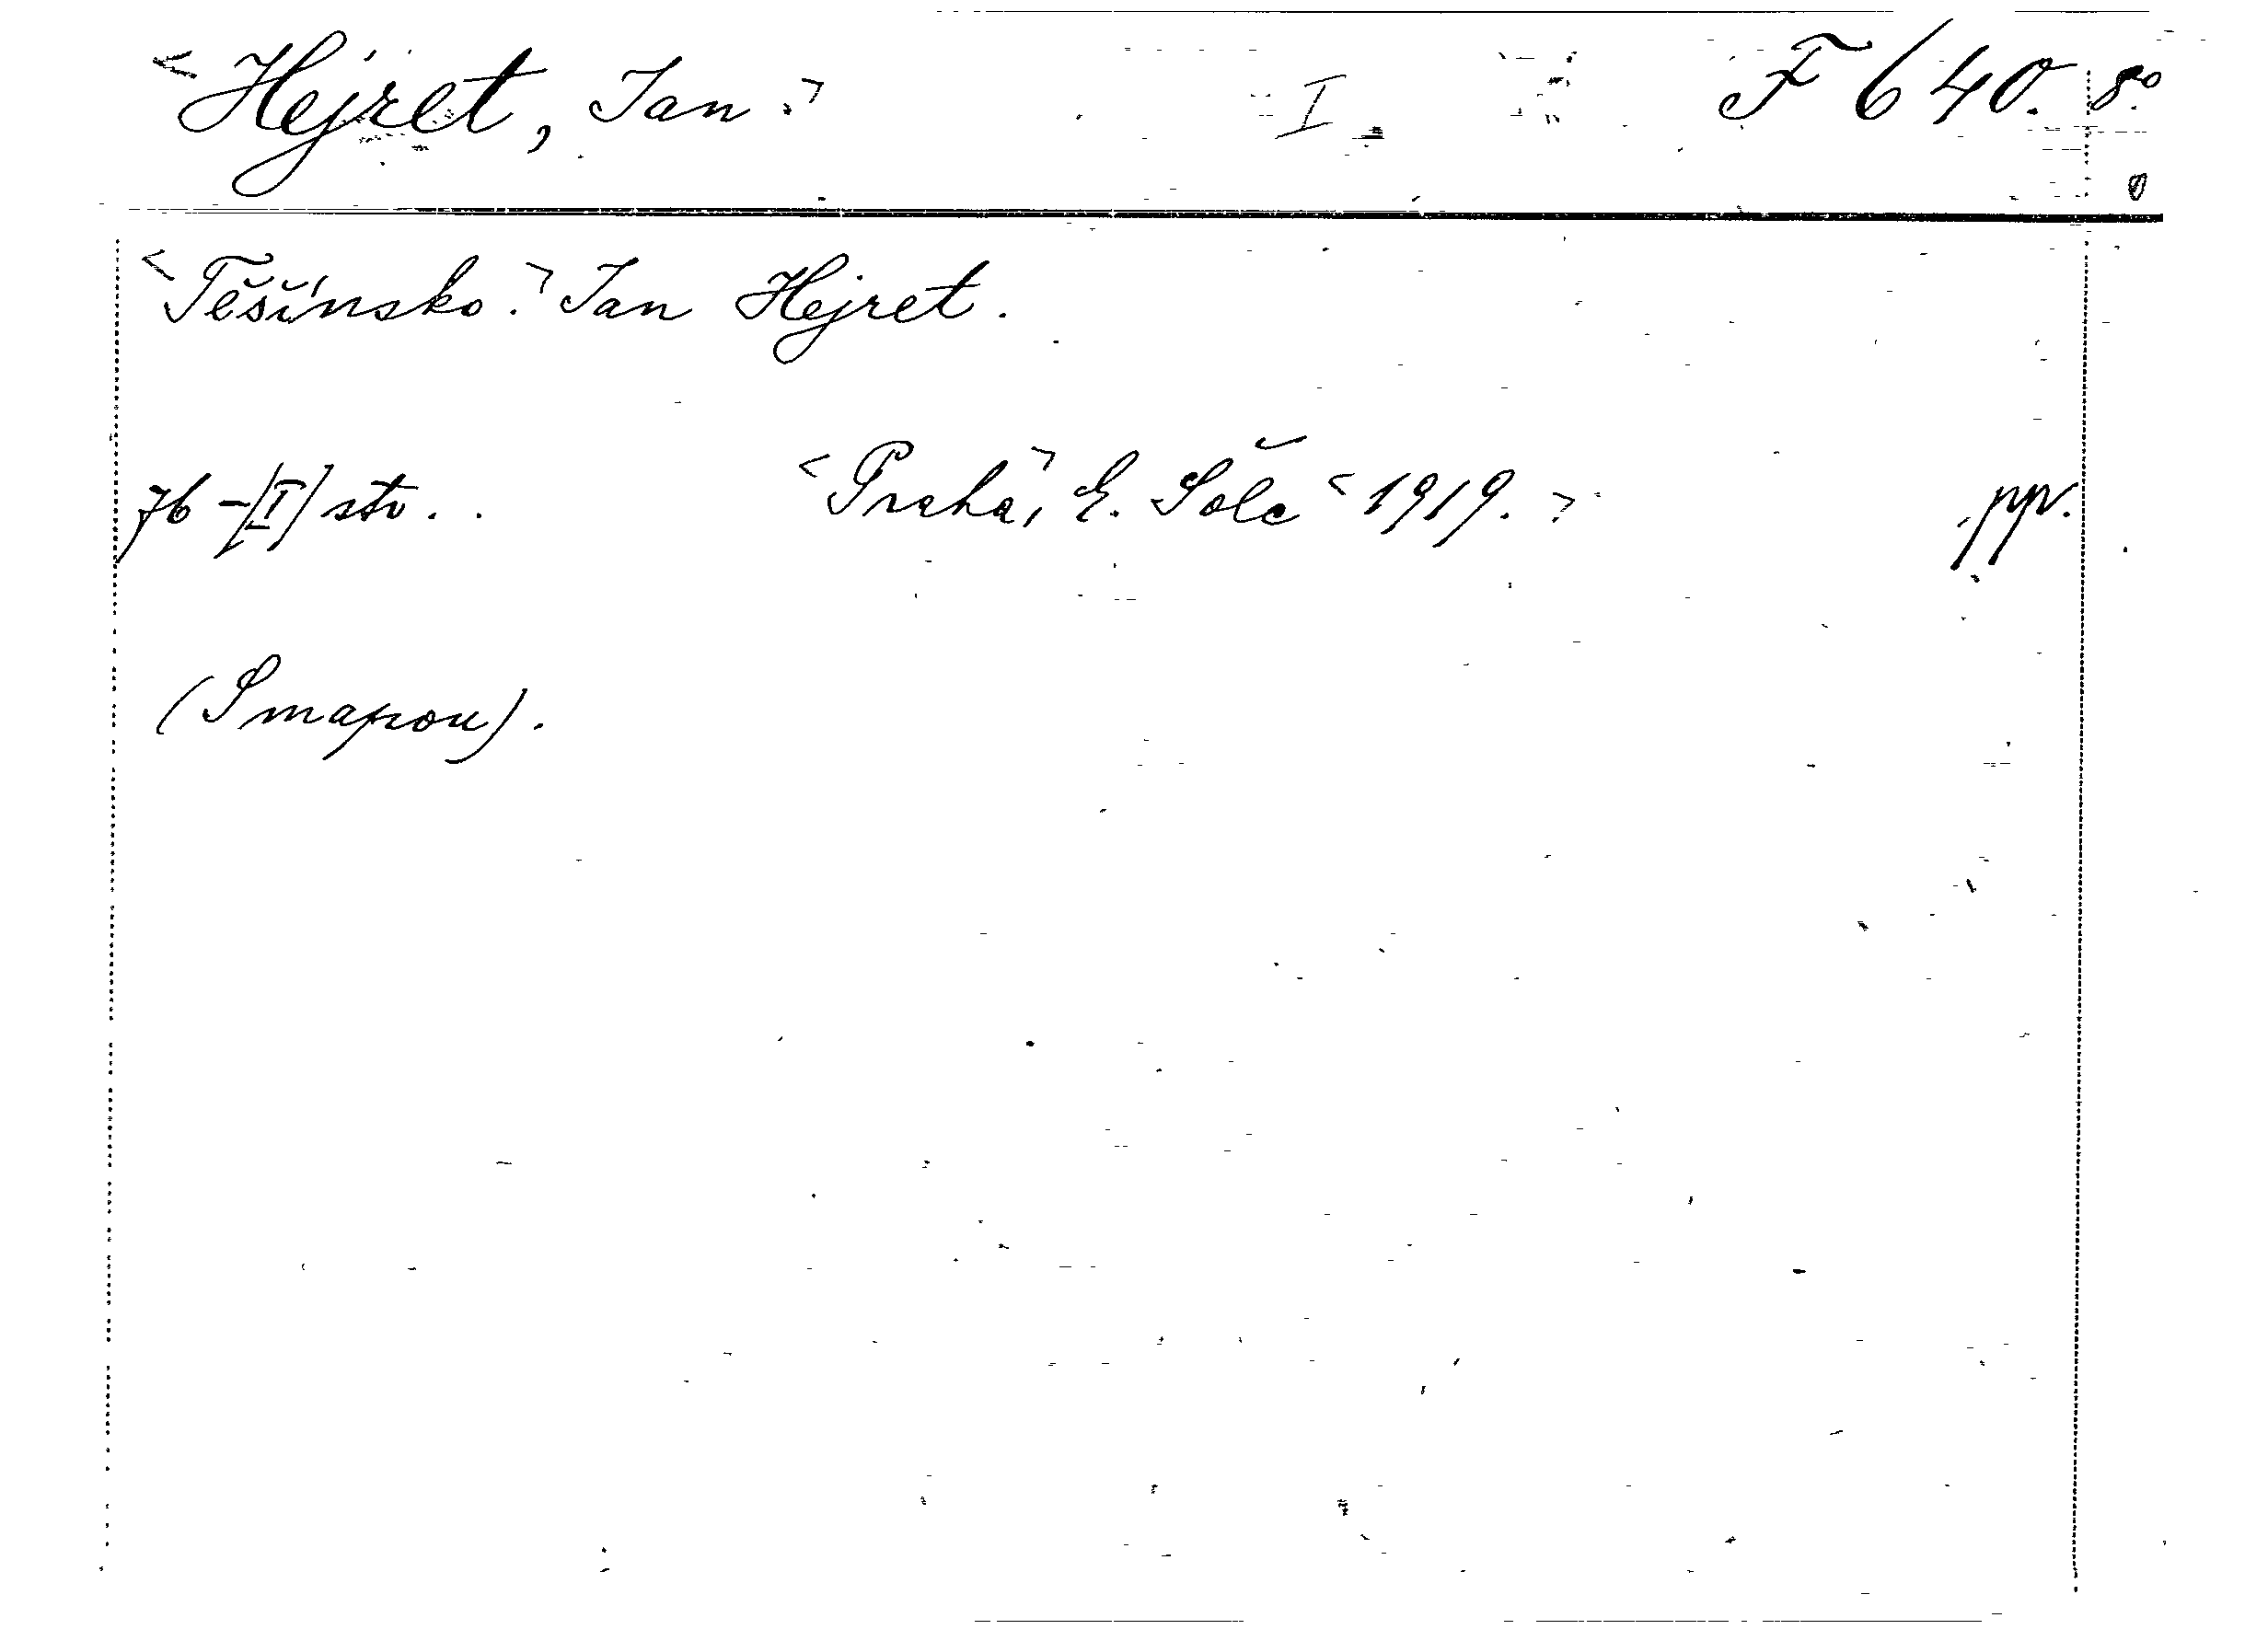 <Hejret, Jan.> I. F 640. 8°
<Těšínsko.> Jan Hejret.
76 - [I] str. . <Praha,> E. Šolc <1919.> ppv.
(S mapou).